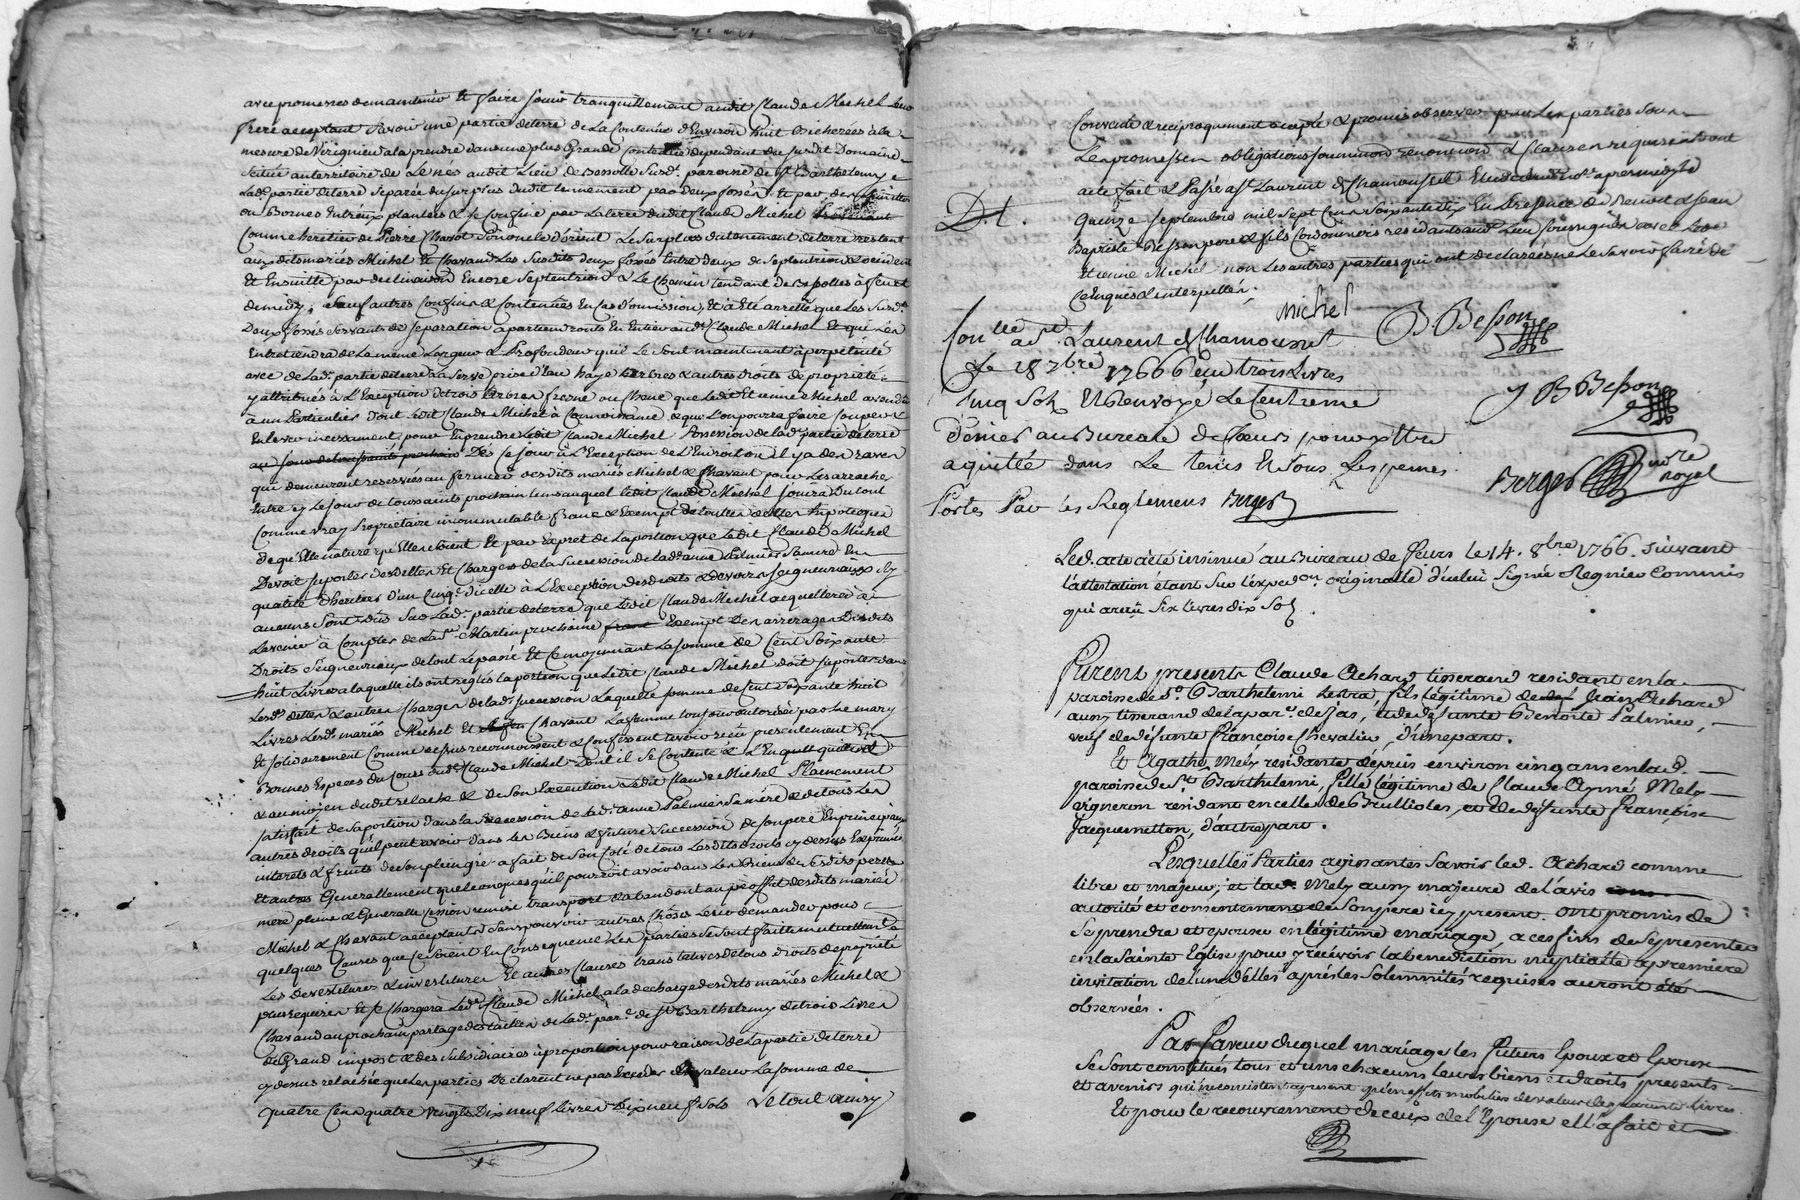 avec promesses de maintenir Et faire jouir tranquillement audit Claude Michel leur
frere acceptant Savoir une partie de terre de la Contenue d'Environ huit bicherées à la
mesure de Verignieu a la prendre dans une plus Grande Contenue dependant du susdit Domaine
Scitué au territoire de audit Lieu de Bessolle Susd. paroisse de St Barthelemy
Lad. partie de terre Separée du surplus dudit tennement par deux fossés Et par des
ou Bornes Entreux plantées & se Confine par la terre dudit Claude Michel
Comme heretier de Pierre Chavot d'orient Le Surplus du tenement de terre restant
auxdits mariés Michel Et Chavand Les susdits deux fossés Entre deux de Septentrion & occident
Et Ensuitte par declinaison Encore Septentrion & Le Chemin tendant de Bessolles à feurs Et
de midy, Sauf autres Confins & Contenues En Cas d'omission, Et a Eté arretté que Les Susd.
Deux fossés servants de separation apartiendronts En Entier audt Claude Michel Et qui Les
Entretiendra de La même Largeur & Profondeur qu'il Le Sont maintenant à perpetuité
avec de Lad. partie de terre La Serve prise d'Eau haye arbres & autres droits de proprieté
y attribués à L'Exception de trois arbres fresne ou Chane que Ledit Etienne Michel a vendu
à un Particulier dont Ledit Claude Michel à Connoissance & que L'on pourra faire Couper &
Enlever incessament, pour Enprendre Ledit Claude Michel Possession de Lad. partie de terre
au jour de toussaints prochain Dès Ce jour à L'Exception de L'Endroit ou il y a des raves
qui demeuront reservées au fermier desdits mariés Michel & Chavant pour Les arracher
Entre Cy Le jour de toussaints prochain tems auquel Ledit Claude Michel jouira Du tout
Comme vray Proprietaire incommutable franc & Exempt de touttes dettes hipoteques
de qu'Elle nature qu'Elle soient Et par Expret de La portion que Ledit Claude Michel
Devoit suporter des dettes Et Charges de la Succession de Lad. anne Palmier Sa mere En
qualité d'heritier d'un Cinq.e d'icelle à L'Exception des droits & devoirs seigneuriaux sy
aucuns Sont dûs Sur Lad. partie de terre que Ledit Claude Michel acquittera à
Lavenir à Compter de La St Martin prochaine franc Exempt Des arrerages Desdits
Droits Seigneuriaux de tout Le passé Et Ce moyennant La somme de Cent Soixante
huit Livres a laquelle ils ont reglés la portion que Ledit Claude Michel doit suporter dans
Lesd. dettes & autres Charges de Lad. succession Laquelle somme de Cent Soixante huit
Livres Lesd. mariés Michel Et Chavant La femme toujours autorisée par le mary
Et solidairement Comme dessus reconnoissent & Confessent avoir reçu presentement En
Bonnes Especes du Cours dud. Claude Michel Dont il se Contente & L'En quitte
& au moyen dudit relache & De Son Execution Ledit Claude Michel Plainement
satisfait de sa portion dans la Succession de Lad. anne Palmier Sa mere & de tous Les
autres droits qu'il peut avoir dans Les Biens & future Succession de Son pere En principaux
interets & fruits de son plein gré a fait de Son Coté de tous Lesdits droits cy dessus Exprimés
Et autres Generallement quelconques qu'il pourroit avoir dans Les Biens de Sesdits pere &
mere pleine & Generalle Cession remise transport & abandont au proffit desdits mariés
Michel & Chavant acceptants Sans pouvoir autres Choses Leur demander pour
quelques Causes que Ce soient En Consequence Les parties Se sont faittes mutuellement
Les devestitures & investitures Et autres Clauses translatives de tous droits de proprieté
plus requises Et se Chargera Led. Claude Michel a la decharge desdits mariés Michel &
Chavand au prochain partage des tailles de Lad. par.e de St Barthelemy de trois Livres
de Grand impost & des subsidiaires à proportion pour raison de La partie de terre
cy dessus relachée que Les parties Declarent ne pas Exceder En valeur La somme de
quatre Cent quatre vingts Dix neuf Livres Dix neuf Sols Le tout ainsy
Convenu & reciproquement accepté & promis observer par Les parties Sous
Les promesses obligations soumissions renonciations & Clauses requises dont
acte fait & Passé à St Laurent de Chamousset Etude du nore apres midy le
quinze septembre mil Sept Cent Soixante Six En Presence de Benoit & Jean
Baptiste Besson pere & fils Cordonniers residants audt Lieu soussignés avec Led.
Etienne Michel non Les autres parties qui ont declarées ne Le Savoir faire de
Ce Enquis & interpellés,
D. L.
Michel
B Besson
J B Besson
Berger nore royal
Con.lle à St Laurent de Chamousset
Le 18 7bre 1766 reçu trois Livres
Cinq Sols Et Renvoyé Le Centieme
Denier au Bureau de feurs pour y Etre
aquitté dans Le tems Et Sous Les peines
Portés Par les Reglemens Berger
Led. acte a été insinué au Bureau de feurs le 14. 8bre 1766. suivant
l'attestation étant sur l'expedon originalle d'icelui Signée Regnier Commis
qui a reçu Six livres dix Sols.
Furent presents Claude Achard tisserand residant en la
paroisse de St Barthelemi Lestra, fils légitime de Jean Achard
aussy tisserand de la par.e de Jas, et de défunte Benoite Palmier,
veuf de défunte Françoise Chevalier, d'une part.
Et Agathe Mely residante depuis environ cinq ans en lad.
paroisse de St Barthelemi, fille légitime de Claude Aymé Mely
vigneron residant en celle de Brullioles, et de défunte Françoise
Jacquemetton, d'autre part.
Lesquelles Parties agissantes Savoir led. Achard comme
libre et majeur, et lad. Mely aussy majeure de l'avis
autorité et consentement de Son pere icy present. ont promis de
Se prendre et epouser en légitime mariage, a ces fins de Se presenter
en la Sainte Eglise pour y recevoir la benediction nuptialle a premiere
invitation de l'un d'elles après les Solemnités requises auront été
observées.
Par Faveur duquel mariage les Futurs Epoux et Epouse
Se Sont constitués tous et uns chacuns leurs biens et droits presents
et avenirs qui ne consistent a present qu'en effets mobiliers de valeur de quarante livres.
Et pour le recouvrement de ceux de l'Epouse elle a fait et